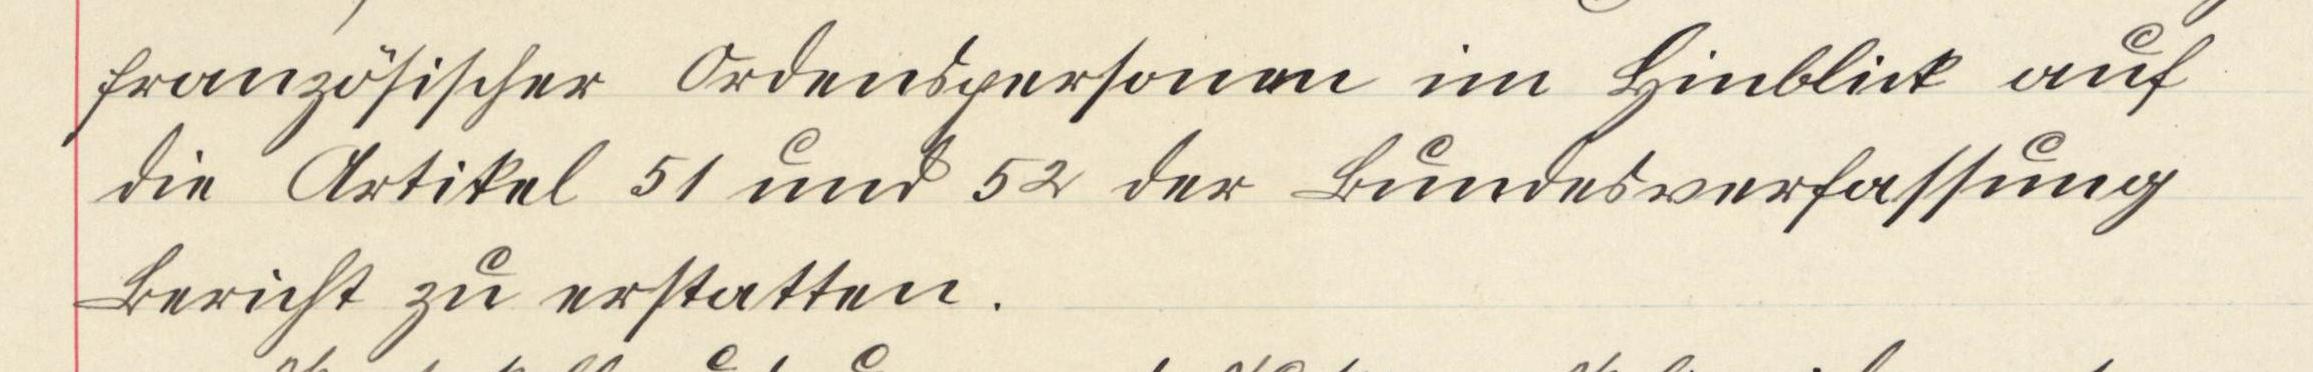 französischer Ordenspersonen im Hinblick auf
die Artikel 51 und 52 der Bundesverfassung
Bericht zu erstatten.